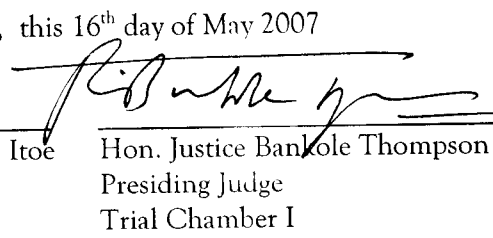 , this 16th day of May 2007
Itoe Hon. Justice Bankole Thompson
Presiding Judge
Trial Chamber I